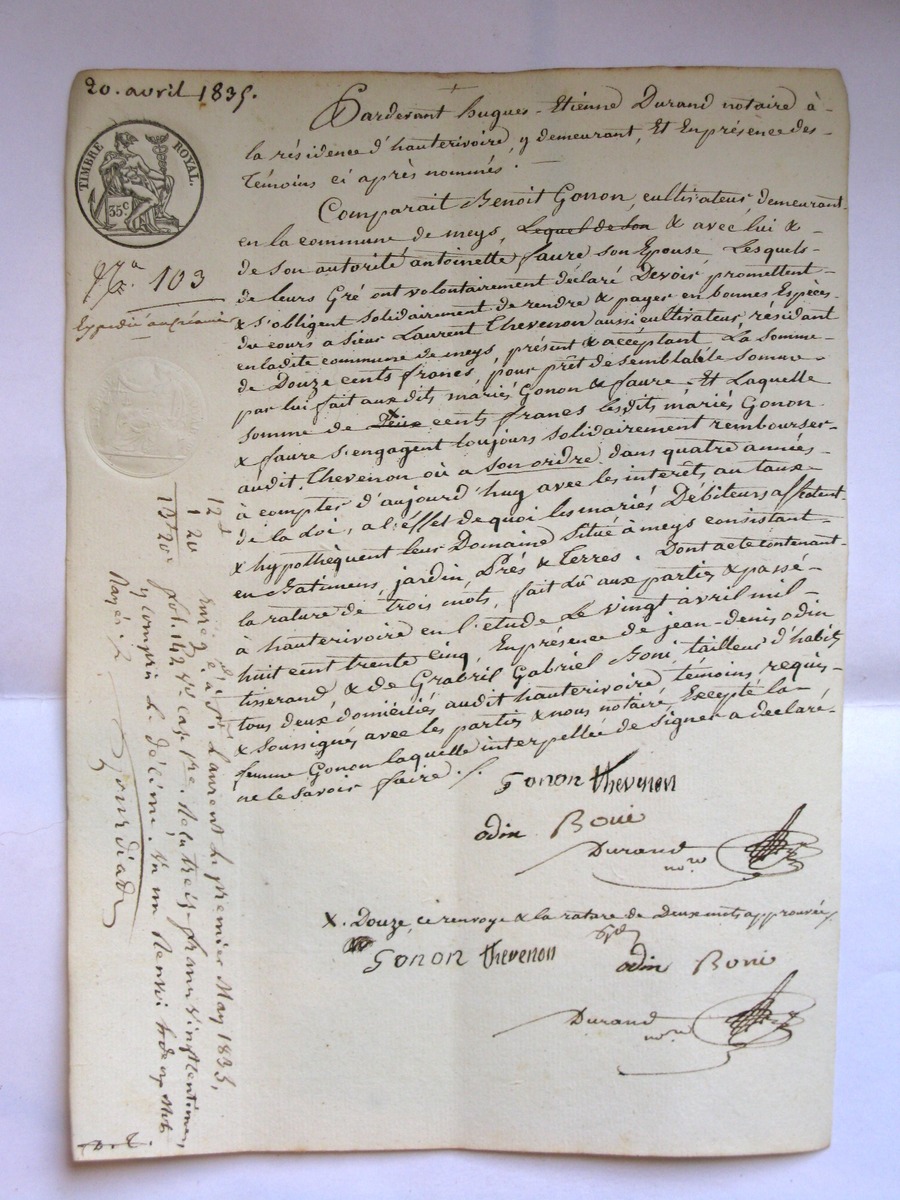 20. avril 1835.
TIMBRE ROYAL.
35c
N.a 103
Expédié au créancier
Pardevant hugues-Etiénne Durand notaire à
la résidence d'hauterivoire, y demeurant, Et En présence des
témoins ci après nommés.
Comparait Benoit Gonon, cultivateur, demeurant
en la commune de meys, Lequel de son & avec lui &
de son autorité antoinette faure son Epouse, Lesquels
de leurs Gré ont volontairement déclaré Devoir, promettent
& s'obligent solidairement de rendre & payer en bonnes Espèces
du cours a Sieur Laurent Thevenon aussi cultivateur, résidant
en ladite commune de meys, présent & acceptant, La somme
de Douze cents francs, pour prêt de semblable somme
par lui fait aux dits mariés Gonon & faure. Et Laquelle
somme de X cents francs lesdits mariés Gonon
& faure s'engagent toujours solidairement rembourser
audit Thevenon où a son ordre dans quatre années
à compter d'aujourd'huy avec les interêts au taux
de la loi, a l'éffet de quoi les mariés Débiteurs affectent
& hypothèquent leur Domaine situé à meys consistant
en Batimens, jardin, Prés & Terres. Dont acte contenant
la rature de trois mots, fait Lû aux parties & passé
à hauterivoire en l'étude Le vingt avril mil
huit cent trente cinq, En présence de jean-denis odin
tisserand, & de Grabril Gabriel Boni, tailleur d'habits
tous deux domiciliés audit hauterivoire, témoins requis
& soussignés avec les parties & nous notaire, Excepté la
femme Gonon laquelle interpellée de signer a déclaré
ne le savoir faire ./.
Gonon thevenon
odin Boni
Durand
nore
X. Douze, ce renvoye & la rature de Deux mots approuvés/.
Gonon thevenon
odin Boni
Durand
nore
12f
1 20
13f 20c
à St Laurent Le premier May 1835,
fol. 142 vo case 1re Reçu treize francs vingt centimes
y compris Le décime.
Rayés